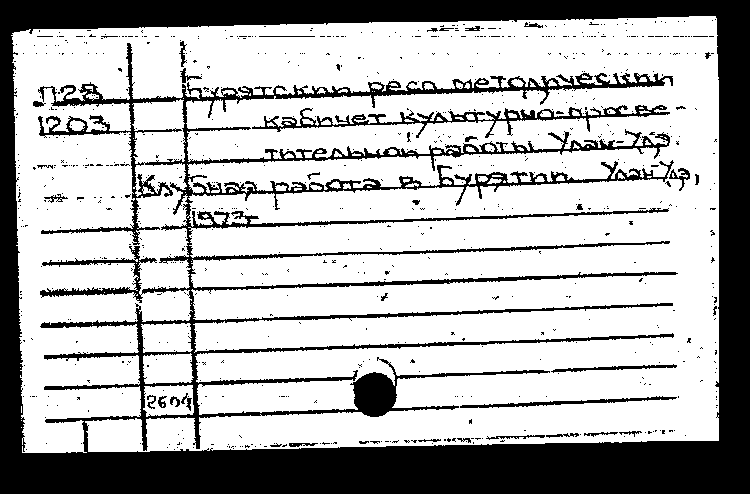 П28 Бурятский респ. методический
1203 кабинет культурно-просве-
тительной работы Улан-Удэ.
Клубная работа в Бурятии. Улан-Удэ,
1973г
2604